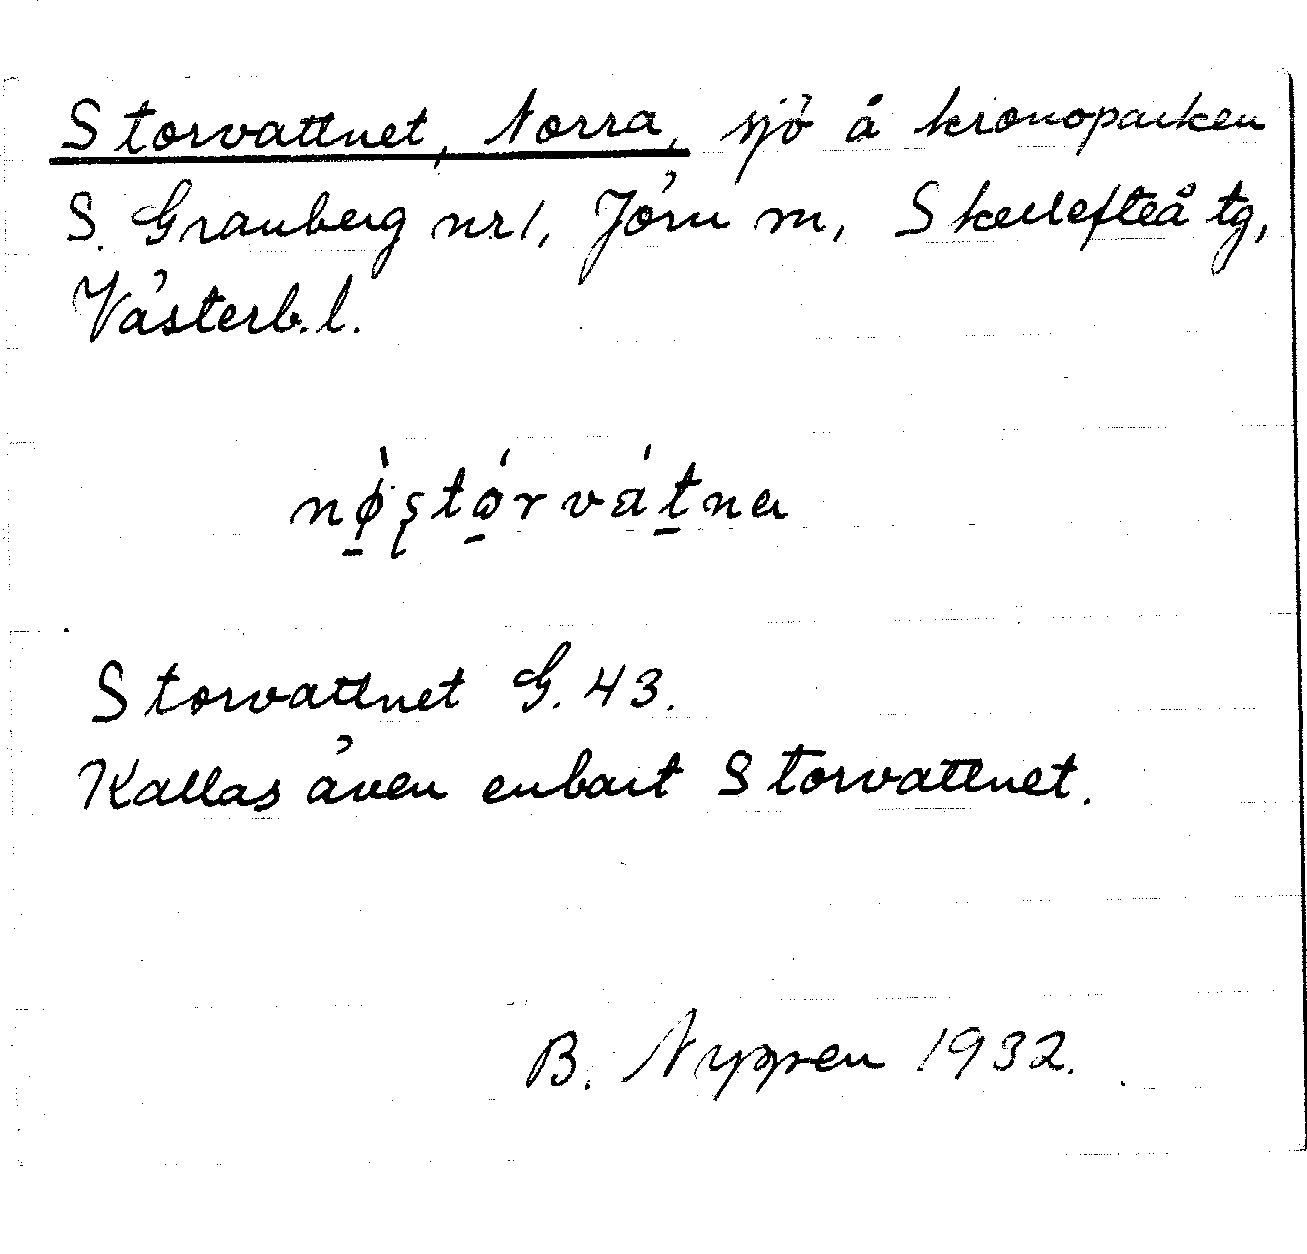 Storvattnet, Norra, sjö å kronoparken
S. Granberg nr 1, Jörn sn, Skellefteå tg,
Västerb. l.
nø̱̀ştǫ́rvát̠na
Storvattnet G. 43.
Kallas även enbart Storvattnet.
B. Nyppen 1932.